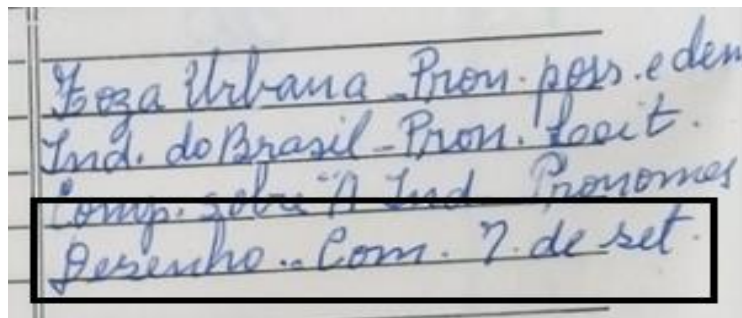 Urbana - Pron. poss. e dem
Ind. do Brasil - Pron.
Comp. sobre "A Ind. Pronomes
Desenho.. Com. 7. de set.